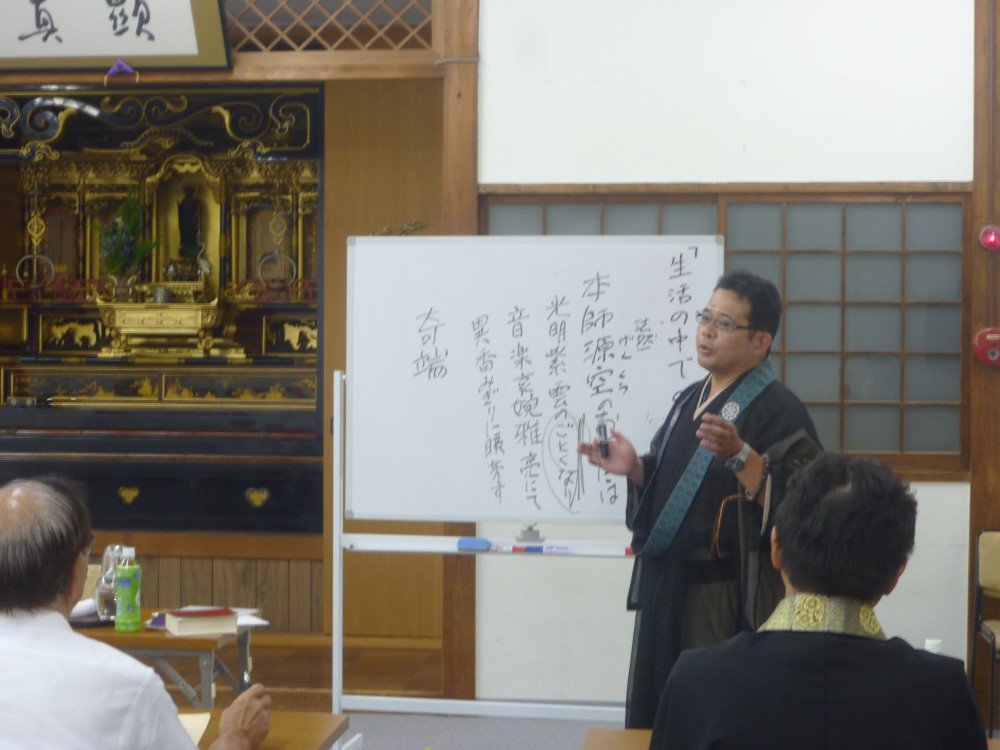 顕真
「生活の中で
法然
げんくう
本師源空の　　は
光明紫雲のごとくなり
音楽哀婉雅亮にて
異香みぎりに暎芳す
奇端